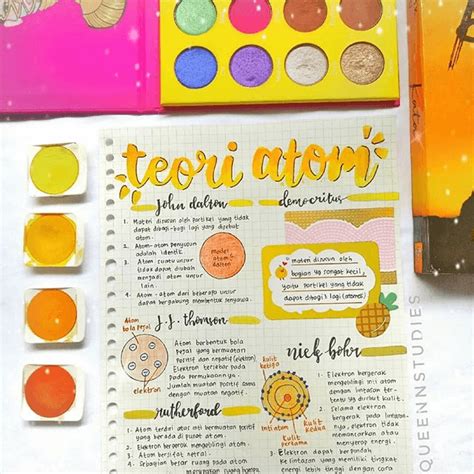 teori atom
john dalton
1. Materi disusun oleh partikel yang tidak
dapat dibagi-bagi lagi yang disebut
atom.
2. Atom-atom penyusun
adalah identik
3. Atom suatu unsur
tidak dapat diubah
menjadi atom unsur
lain.
4. Atom-atom dari beberapa unsur
dapat bergabung membentuk penyusun.
model
atom
dalton
democritus
materi disusun oleh
bagian yg sangat kecil,
yaitu partikel yang tidak
dapat dibagi lagi (atomos)
J.J. thomson
Atom
bola pejal
elektron
Atom berbentuk bola
pejal yang bermuatan
positif dan negatif (elektron)
Elektron tersebar pada
pada permukaannya.
Jumlah muatan positif sama
dengan muatan negatif.
niels bohr
kulit
ketiga
Inti atom
kulit
pertama
kulit
kedua
1. Elektron bergerak
mengelilingi inti atom
dengan lintasan ter-
tentu yg disebut kulit.
2. Selama elektron
bergerak dari orbit-
nya, elektron tidak
memancarkan atau
menyerap energi.
3. Elektron dapat ber-
pindah dari kulit yang
memiliki tingkat
rutherford
1. Atom terdiri atas inti bermuatan positif yang
berada di pusat atom.
2. Elektron bergerak mengelilingi atom.
3. Atom bersifat netral.
4. Sebagian besar ruang pada atom
QUEENNSTUDIES